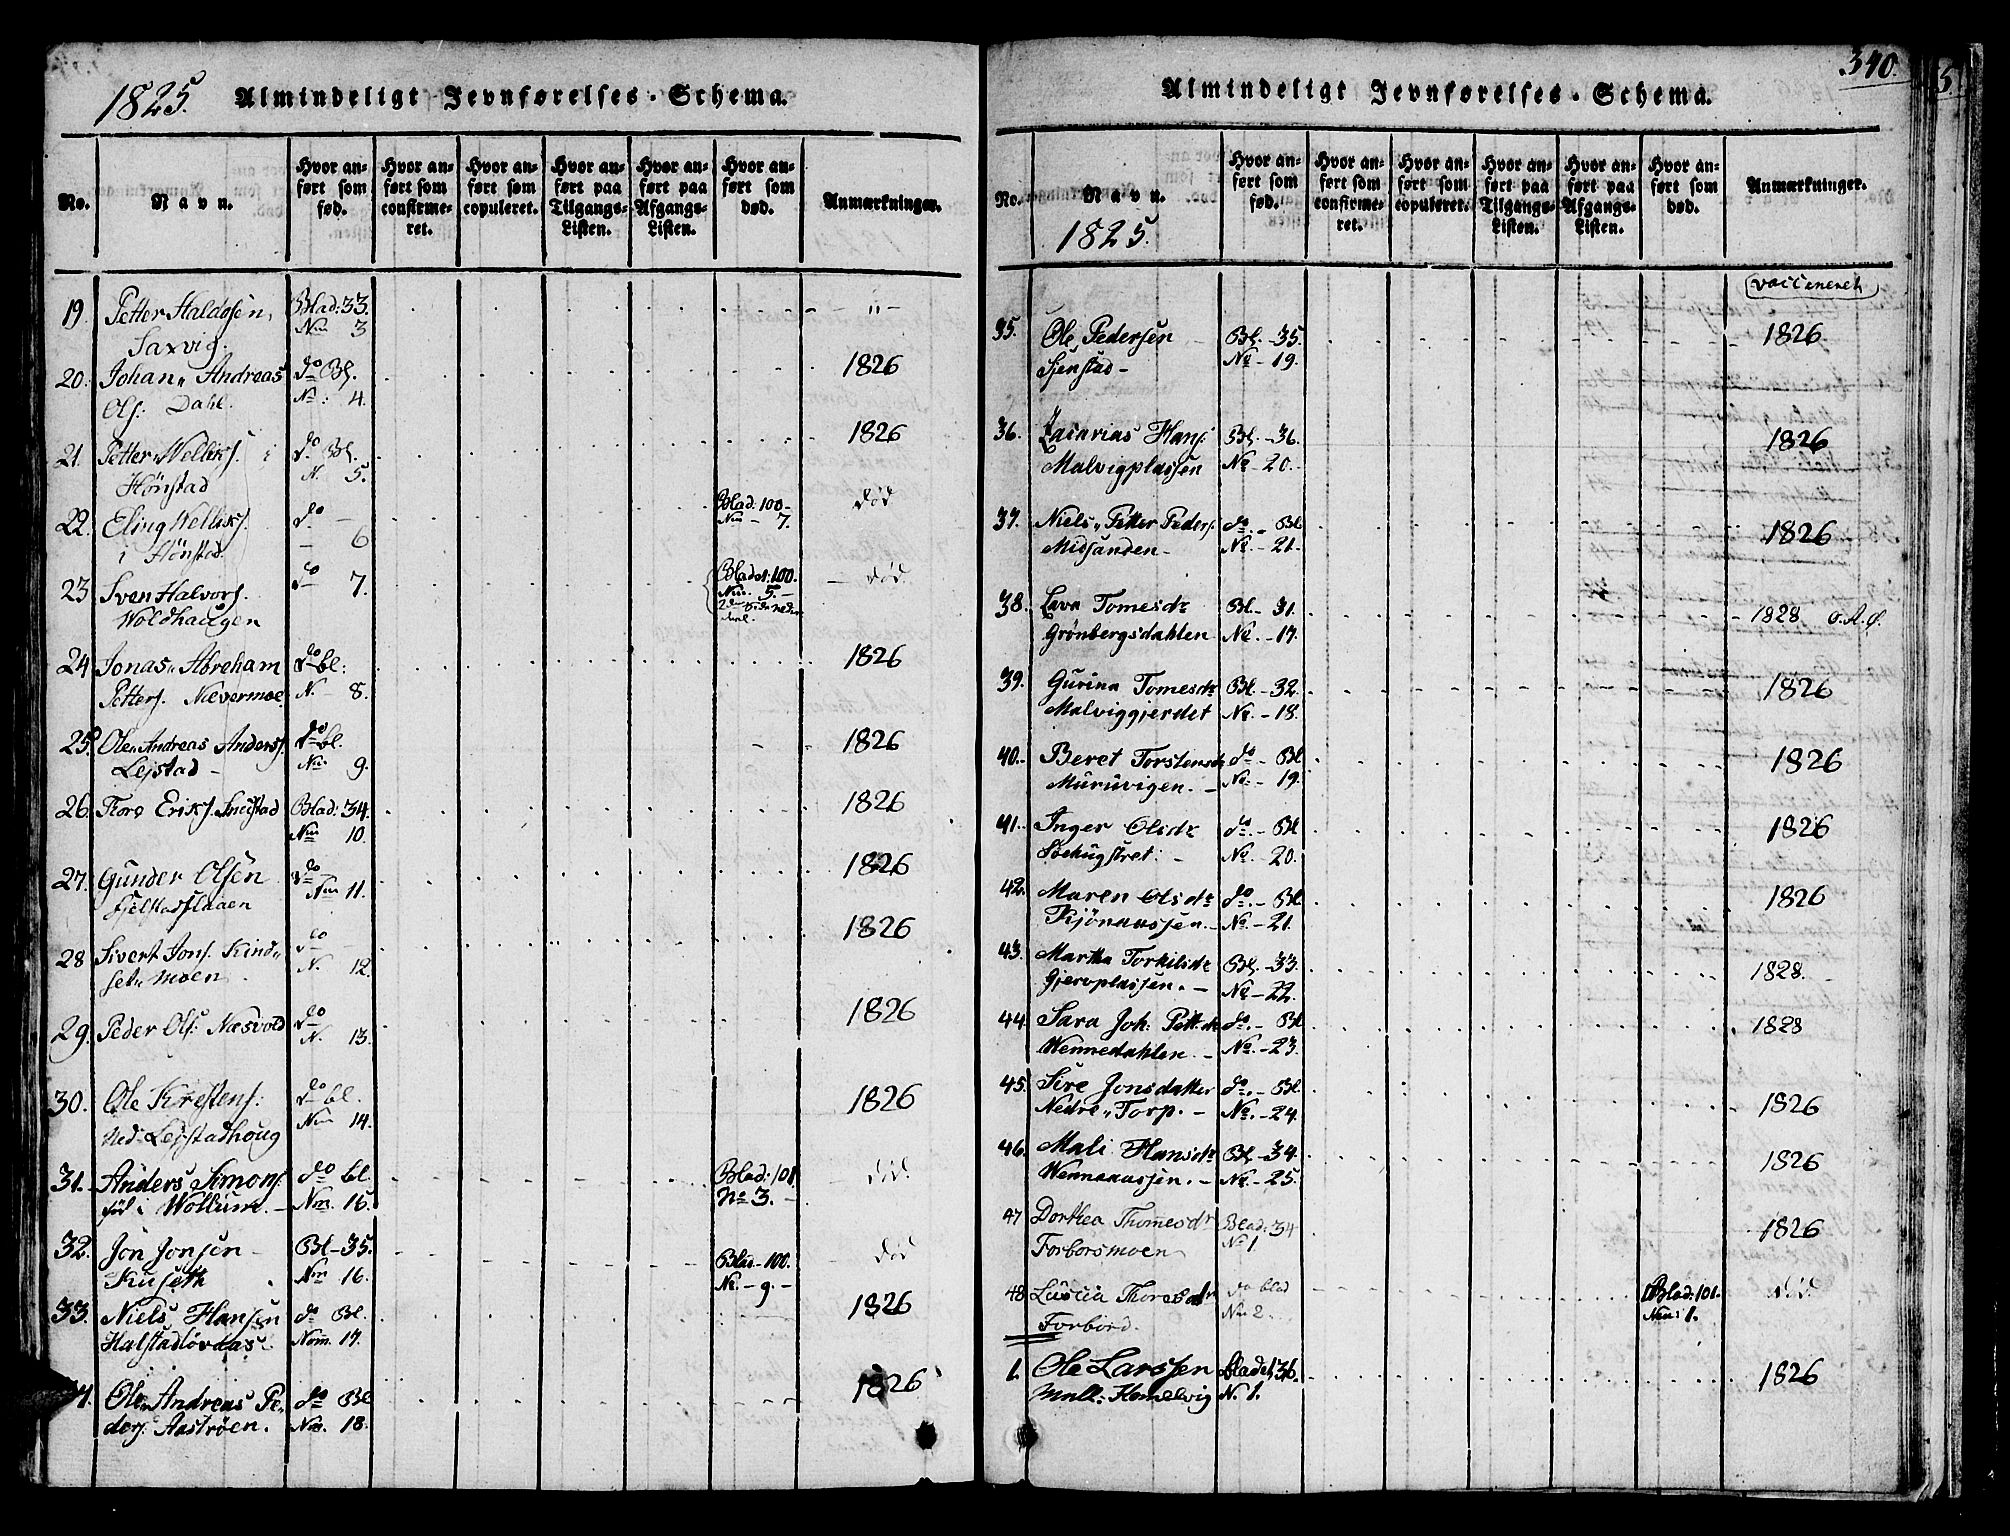 1825. Almindeligt Jevnførelses-Schema.
No.
Navn.
Hvor anført som fød.
Hvor anført som confirmeret.
Hvor anført som copuleret.
Hvor anført paa Tilgangs-Listen.
Hvor anført paa Afgangs-Listen.
Hvor anført som død.
Anmærkninger.
19. Petter Haldosen, Blad: 33. - " -
Saxvig. Num 3
20. Johan" Andreas do Bl. 1826
Ols: Dahl. No: 4.
21. Petter Welliks. i do Bl. 1826
Hønstad N. 5.
22. Eling Welliks. do - Blad: 100- død
i Hønstad - 6 Num - 7.
23 Sven Halvors. do 7. Bladet: 100. - død
Woldhaugen Num. 5. -
24 Jonas" Abreham do bl: 1826
Petters. Nævermoe N. - 8.
25. Ole" Andreas Anders. do bl. 1826
Lejstad - Nm 9.
26. Tore Eriks. Smistad Blad: 34. 1826
Num 10.
27. Gunder Olsen do 1826
Num 11.
28 Sivert Jons. Kind" do 1826
set" moen N. 12.
29. Peder Ols. Næsvold do 1826
N. 13.
30. Ole Kristens: do bl. 1826
Ned: Lejstadhoug Num 14.
31. Anders Simons. do bl. Blad: 101 død.
Wollum. - Nm. 15. No 3. -
32. Jon Jonsen - Bl - 35. Blad - 100. død
Kuseth Nm 16. No. - 9. -
33. Niels Hansen do Bl. 1826
Halstadløvaas. Nom. 17.
Ole" Andreas Pe" do Bl 1826
ders. Aastrøen. Nm. 18.
340.
Almindeligt Jevnførelses-Schema.
No.
Navn.
1825.
Hvor anført som fød.
Hvor anført som confirmeret.
Hvor anført som copuleret.
Hvor anført paa Tilgangs-Listen.
Hvor anført paa Afgangs-Listen.
Hvor anført som død.
Anmærkninger.
vaccineret
35. Ole Pedersen Bl. - 35. 1826
Sjenstad - No - 19.
36. Zacarias Hans. Bl. - 36. 1826
Malvigplassen No - 20.
37. Niels" Petter Peders. do. - Bl 1826
Midsanden - No. - 21.
38. Lava Tomesdr Bl. - 31. 1828
Grønbergsdahlen No. - 17.
39. Gurina Tomesdr Bl. - 32. 1826
Malviggjerdet No. - 18.
40. Beret Torstensdr do. - Bl 1826
Muruvigen. - No - 19.
41. Inger Olsdr do. - Bl 1826
No. 20.
42. Maren Olsdr do. - Bl 1826
Kjønaassen. - No. - 21.
43. Martha Torkilsdr Bl. - 33. 1828.
Gjervplassen. - No - 22.
44. Sara Joh: Pett:dr do. - Bl 1828
Wennedahlen. - No. - 23.
45. Sire Jonsdatter do. - Bl 1826
Nedre" Torp. - No. - 24.
46. Mali Hansdr Bl. - 34. 1826
Wennaaassen. - No. - 25.
47 Dorthea Thomesdr Blad: 34 1826
Forborsmoen No 1.
48 Lusia Thoresdr do blad Blad: 101. død
Forbord. Nm 2. Num 1.
1. Ole Larssen Bladet 36. 1826
Homelvig N. 1.